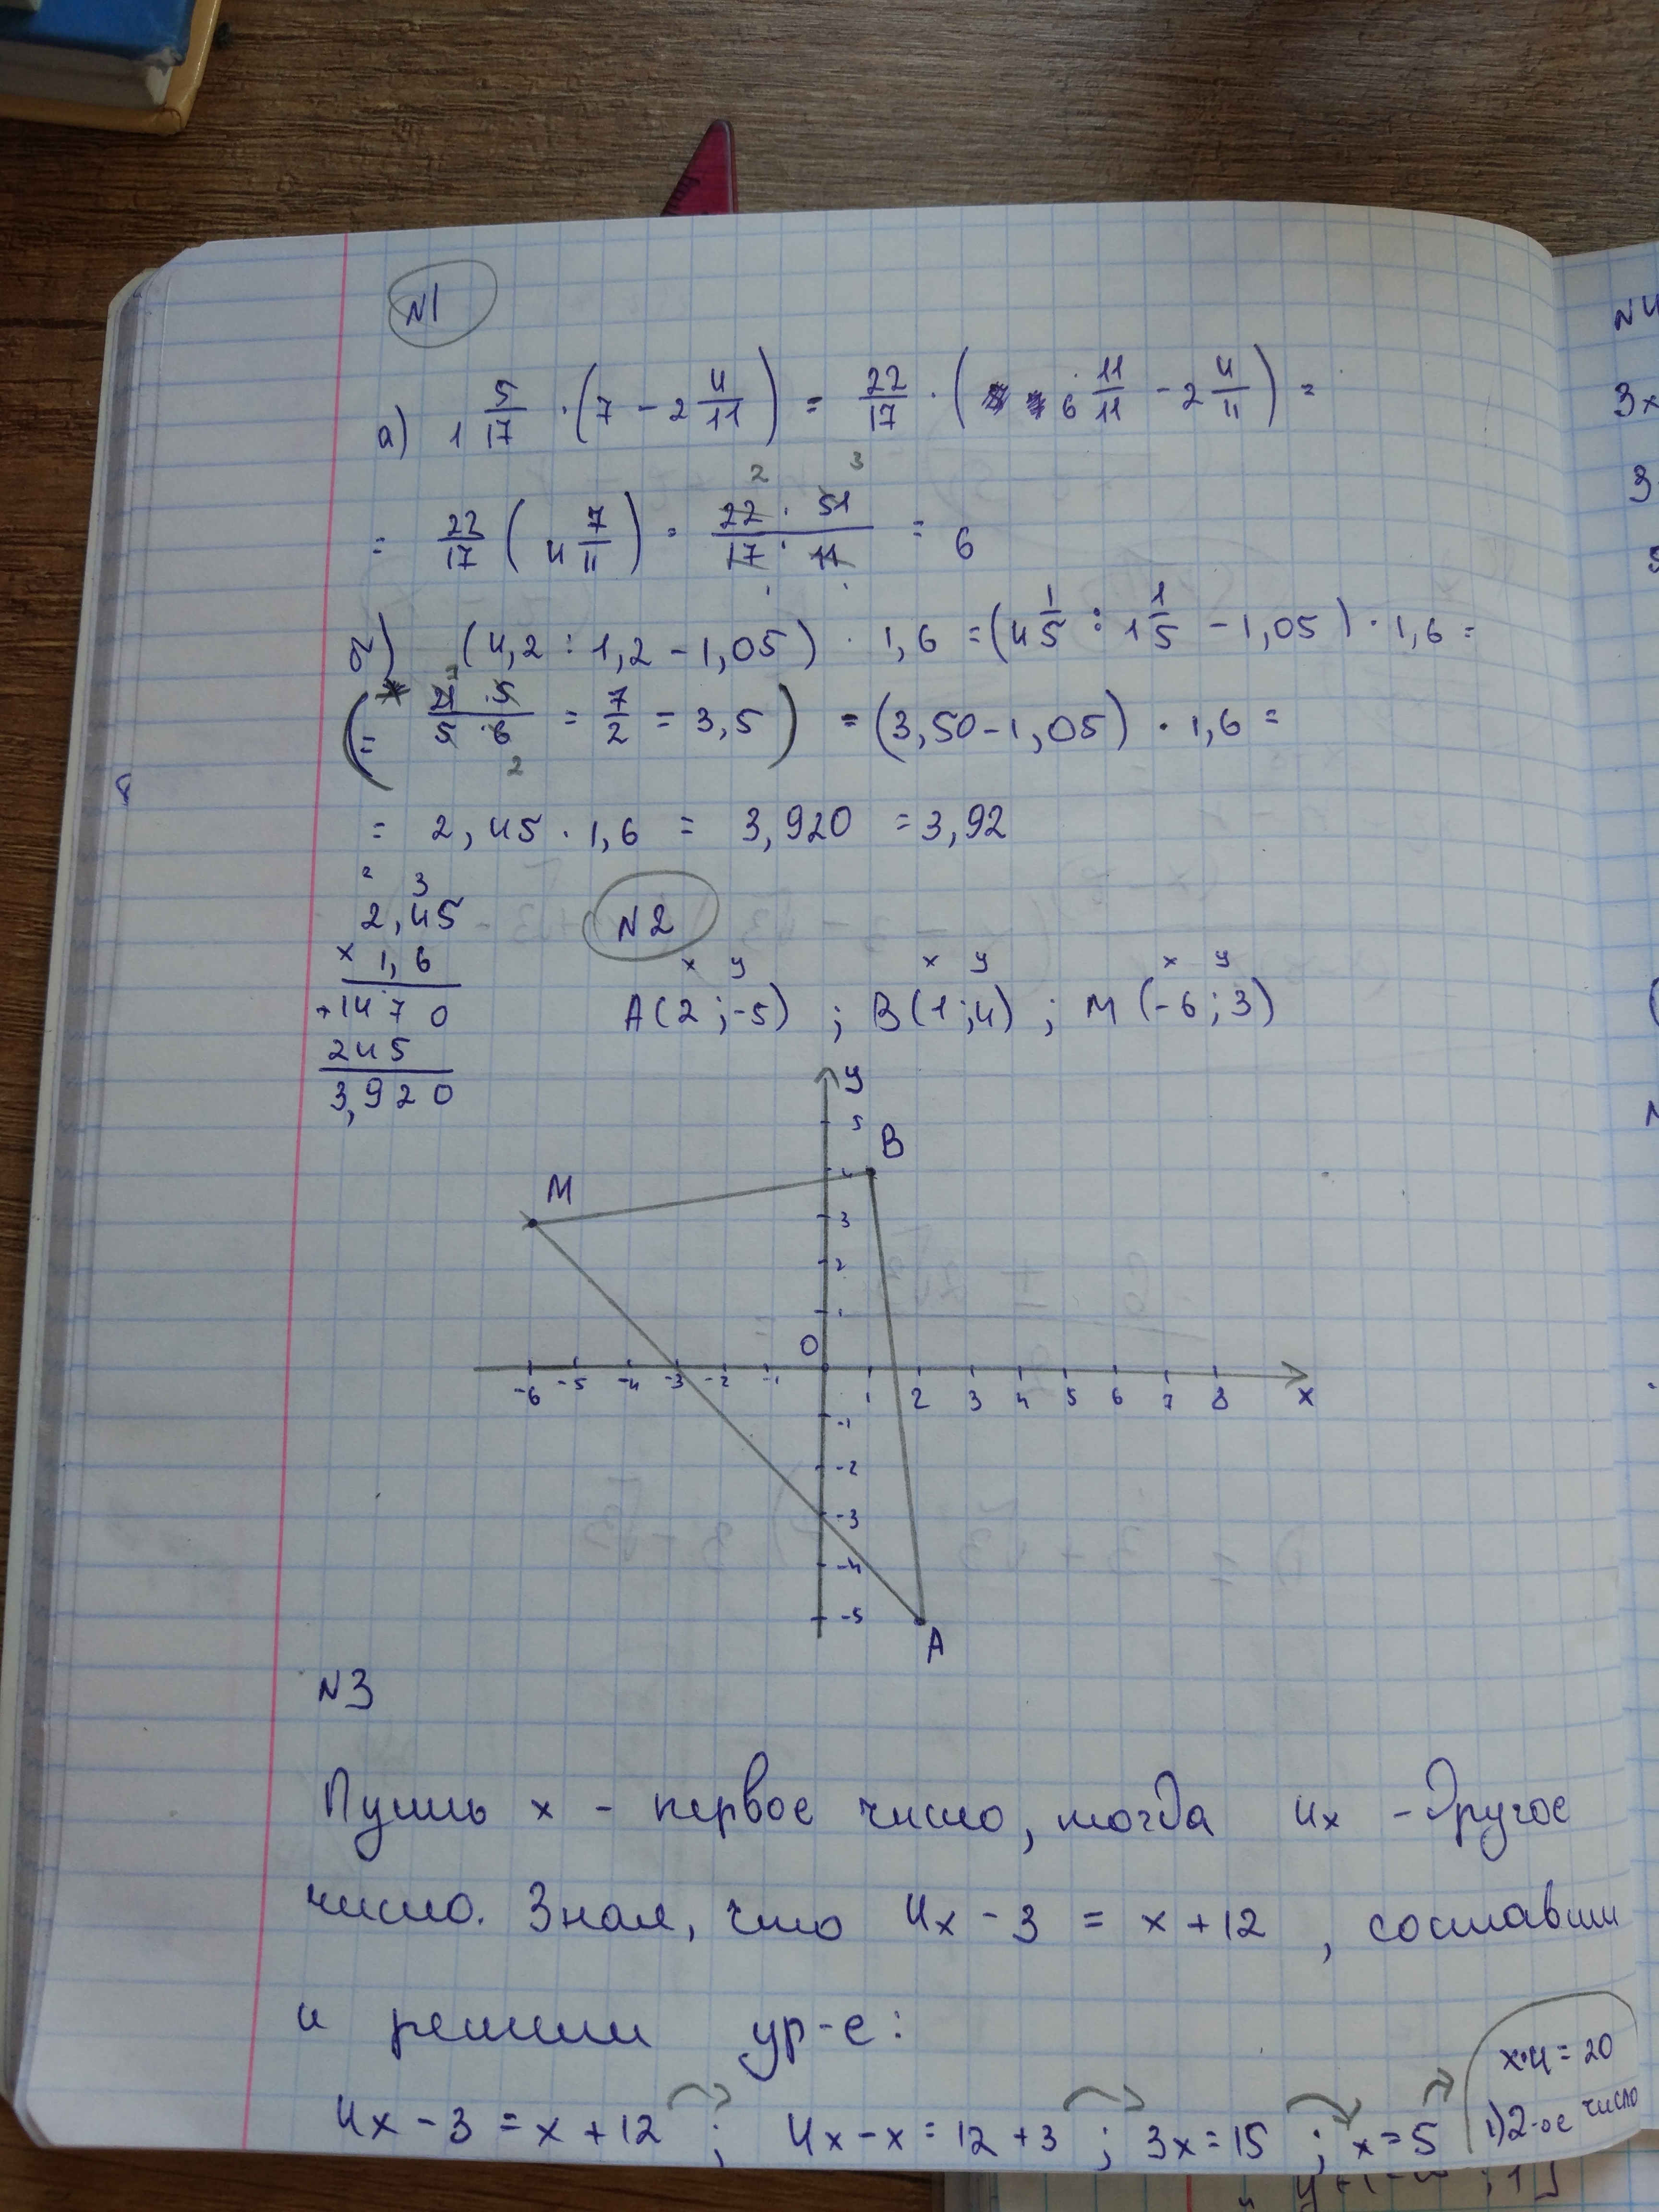 N1
а) 1 5/17 · (7 − 2 4/11) = 22/17 · (6 11/11 − 2 4/11) =
= 22/17 (4 7/11) = 22 · 51 / 17 · 11 = 6
2 3
б) (4,2 : 1,2 − 1,05) · 1,6 = (4 1/5 : 1 1/5 − 1,05) · 1,6 =
(= 21 · 5 / 5 · 6 = 7/2 = 3,5) = (3,50 − 1,05) · 1,6 =
2
= 2,45 · 1,6 = 3,920 = 3,92
2 3
2,45
× 1,6
+1470
245
3,920
N2
x y x y x y
A(2 ; −5) ; B(1 ; 4) ; M(−6 ; 3)
y
5
B
4
M
3
2
1
O
-6 -5 -4 -3 -2 -1 1 2 3 4 5 6 7 8 x
-1
-2
-3
-4
-5
A
N3
Пусть x - первое число, тогда 4x - другое
число. Зная, что 4x − 3 = x + 12, составим
и решим ур-е:
4x − 3 = x + 12 ; 4x − x = 12 + 3 ; 3x = 15 ; x = 5
x·4 = 20
1) 2-ое число
N4
3x
3